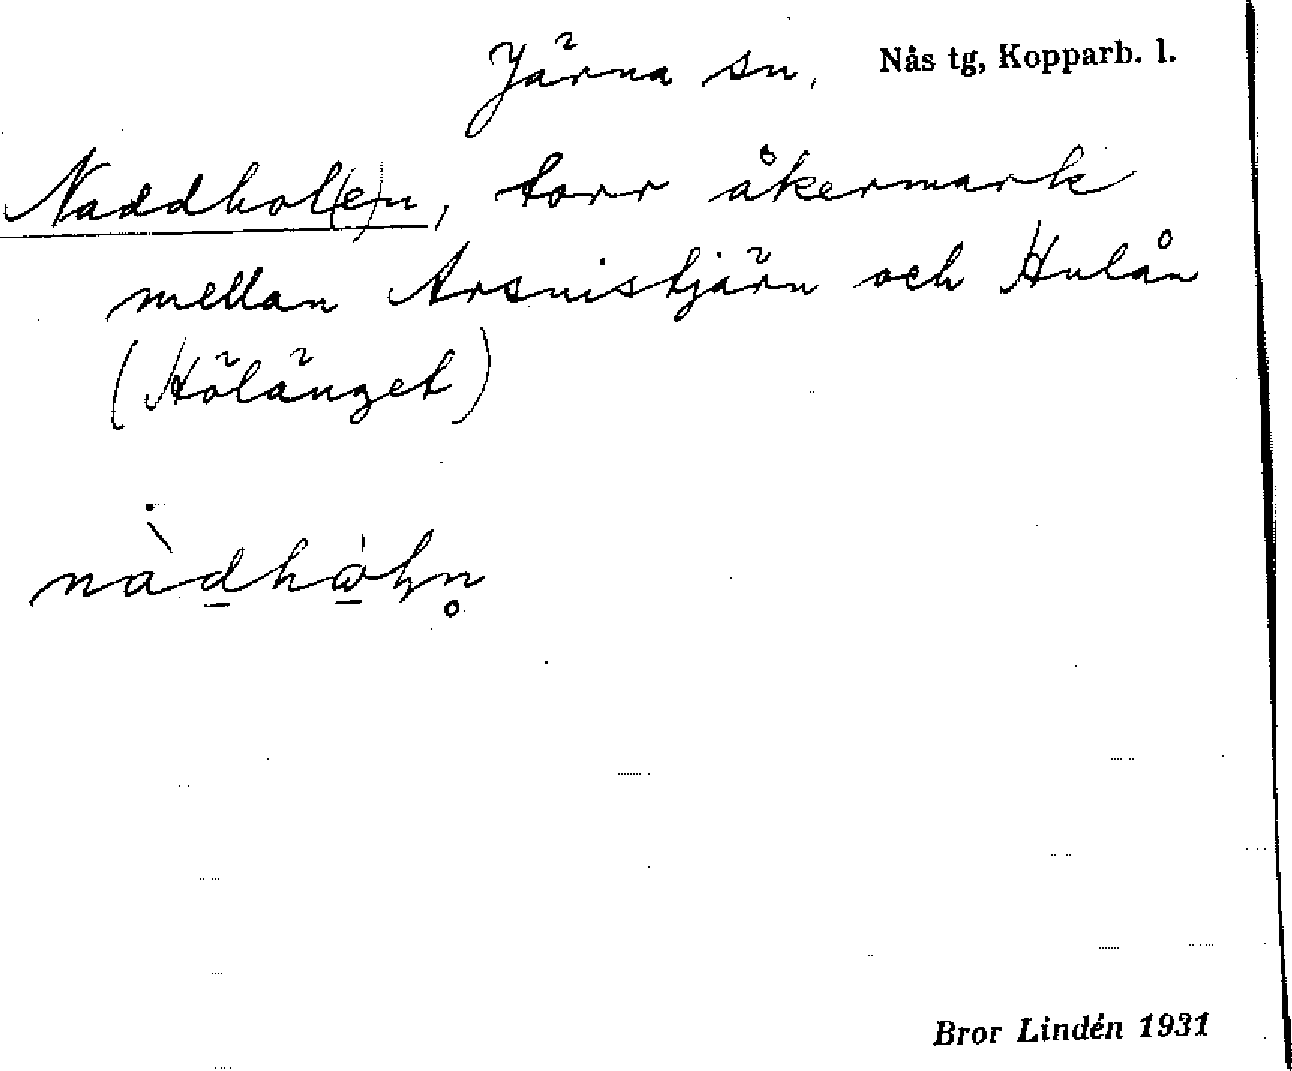 Järna sn. Nås tg, Kopparb. l.
Naddhol(e)n, torr åkermark
mellan Arsnistjärn och Hulån
(Hölänget)
Bror Lindén 1931